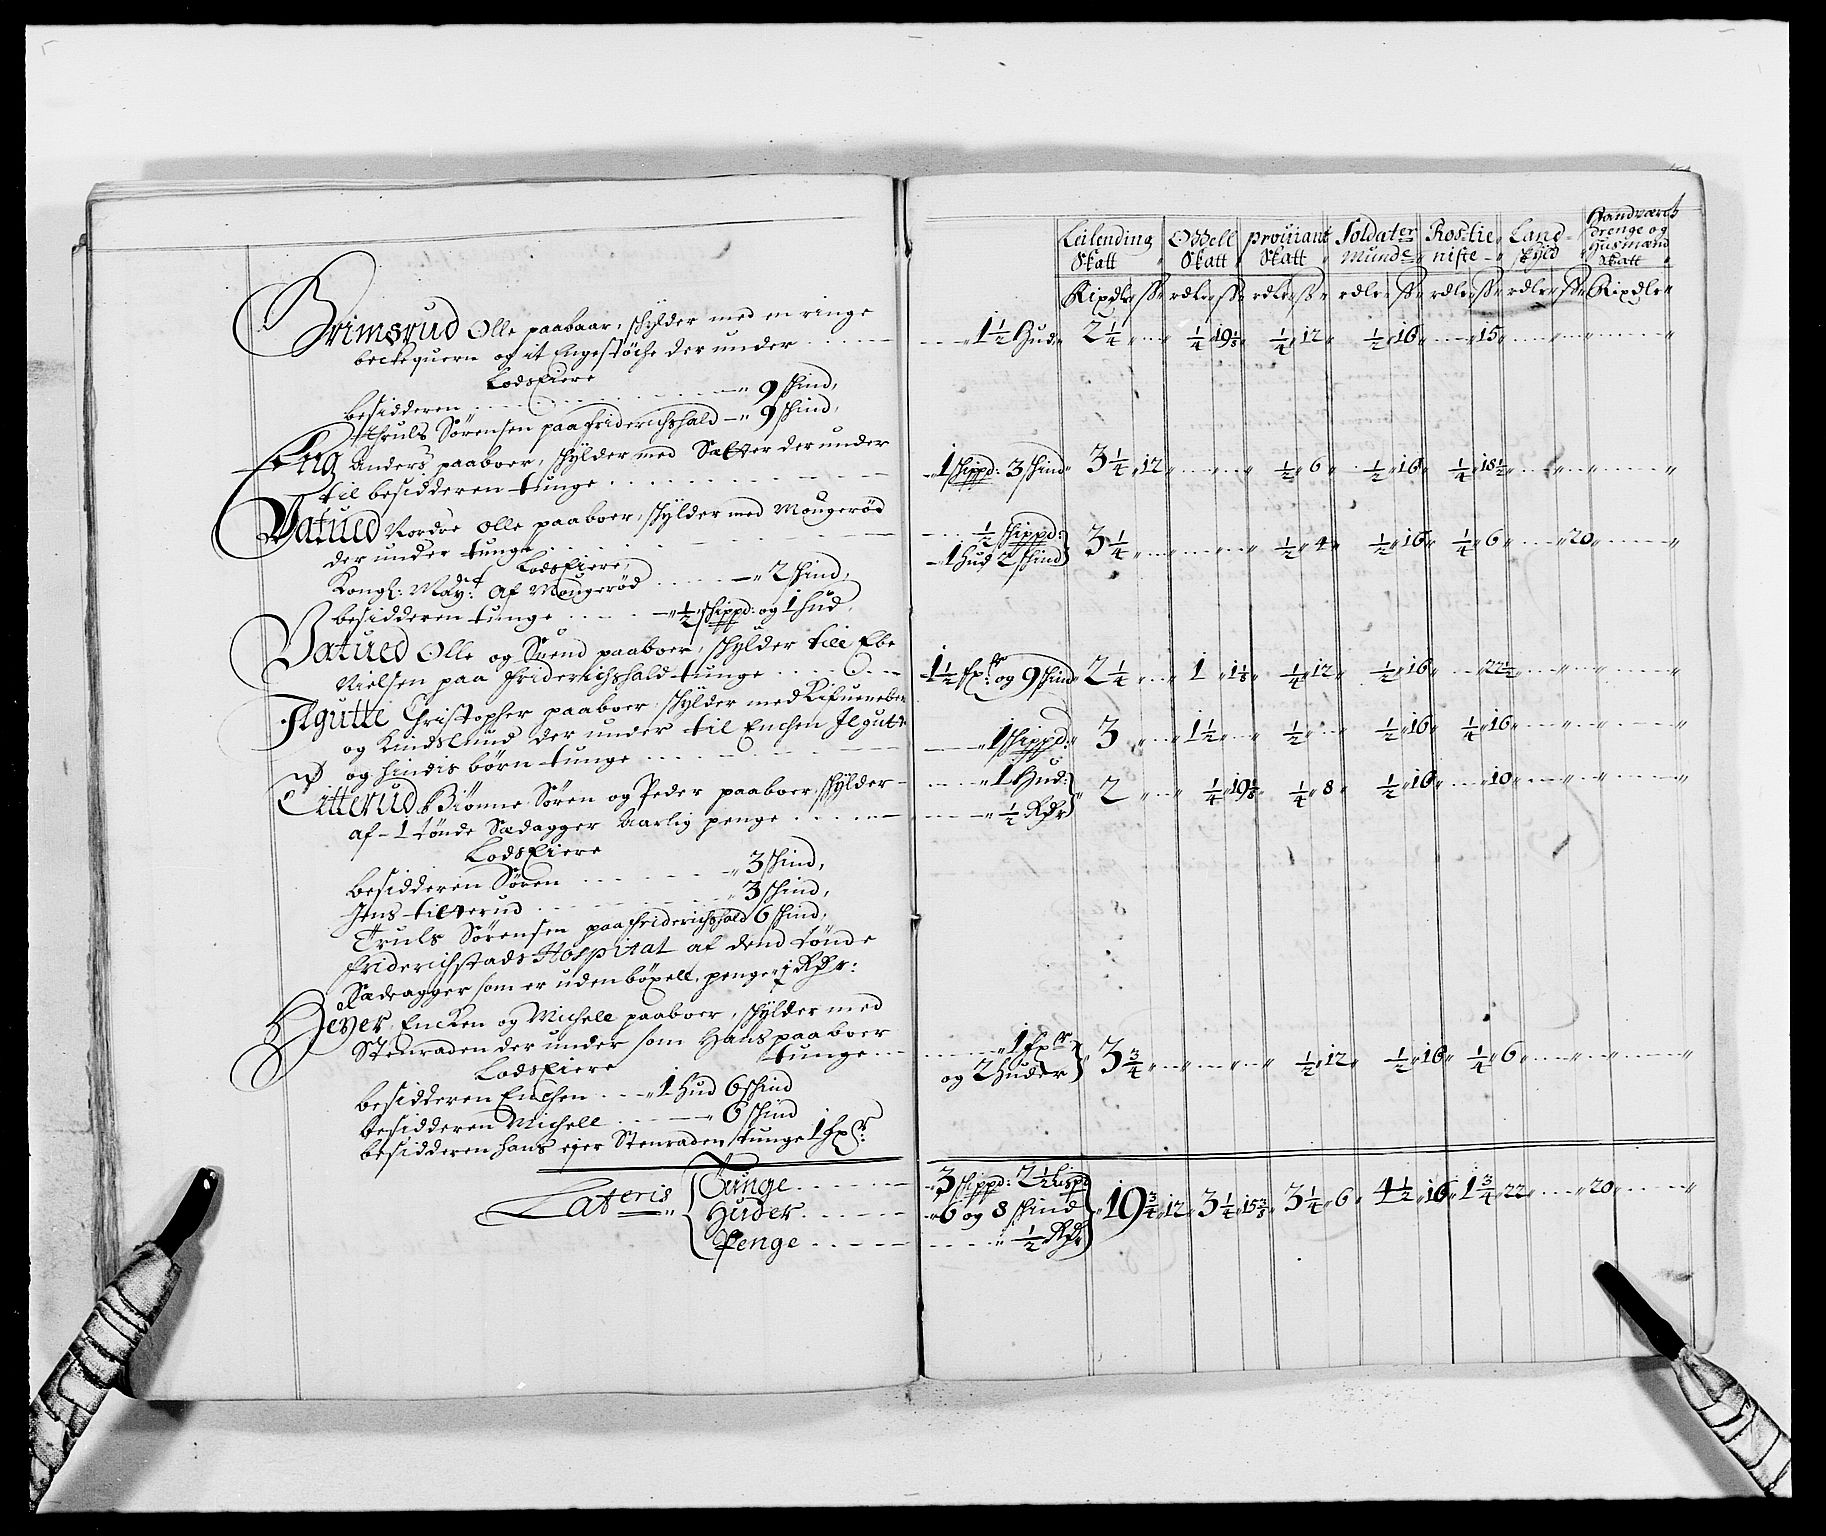 Grimsrud Olle paaboar, skylder med en ringe
beckequern og it Engestöche der under
Lodseiere
besidderen 9 skind,
Thruls Sörensen paa friderichshald 9 skind,
Eng Anders paaboer, skylder med Sætter der under
til besidderen tunge
Vatued Nordre Olle paaboer, skylder med Mougeröd
der under tunge
Lodseiere,
Kongl: May:et Af Mougeröd 2 skind,
besidderen tunge ½ skippd: og 1 hud,
Vatued Olle og Suend paaboer, skylder till Ebe
Nielsen paa friderichshald tunge
Ilgutte Christopher paaboer skylder med
og Kindslund der under til Enchen Ilgutte
og hindis börn tunge
Titterud Biönne Sören og Peder paaboer, skylder
af 1 tönde Sædagger Aarlig penge
Lodseiere
besidderen Sören 3 skind,
Jens titterud 3 skind,
Truls Sörensen paa friderichshald 6 skind,
friderichstads Hospital af dend tönde
Sædeagger som er uden böxell, penge ½ Rdr:
Encken og Michell paaboer, skylder med
Stenraden der under som Hans paaboer
tunge
Lodseiere
besidderen Enchen 1 hud 6 skind
besidderen Michell 6 skind
besidderen hans ejer Stenraden tunge 1 fxr:
Lateris
Tunge
Huder
Penge
Leilending Skatt
Odell Skatt
proviant Skatt
Soldater Munde
Rostie niste
Land skyld
Handværck Drenge og Husmænd Skatt
Rixdlr ss rdlr ss rdlr ss rdlr ss rdlr ss rdlr ss Rixdlr
1½ Hud 2¼ ¼ 19⅛ ¼ 12 ½ 16 15
1 skippd: 3 skind 3¼ 12 ½ 6 ½ 16 ¼ 18½
½ skippd:
1 hud 2 skind 3¼ ½ 4 ½ 16 ¼ 6 20
1½ fxr: og 9 skind 2¼ 1 1⅛ ¼ 12 ½ 16 22½
1 skippd: 3 1½ ½ ½ 16 ¼ 16
1 Hud: 2 ¼ 19⅛ ¼ 8 ½ 16 10
½ Rdr
1 fxr
og 2 huder 3¾ ½ 12 ½ 16 ¼ 6
3 skippd: 2½ lispd
6 og 8 skind 19¾ 12 3¼ 15⅜ 3¼ 6 4½ 16 1¾ 22 20
½ Rdr